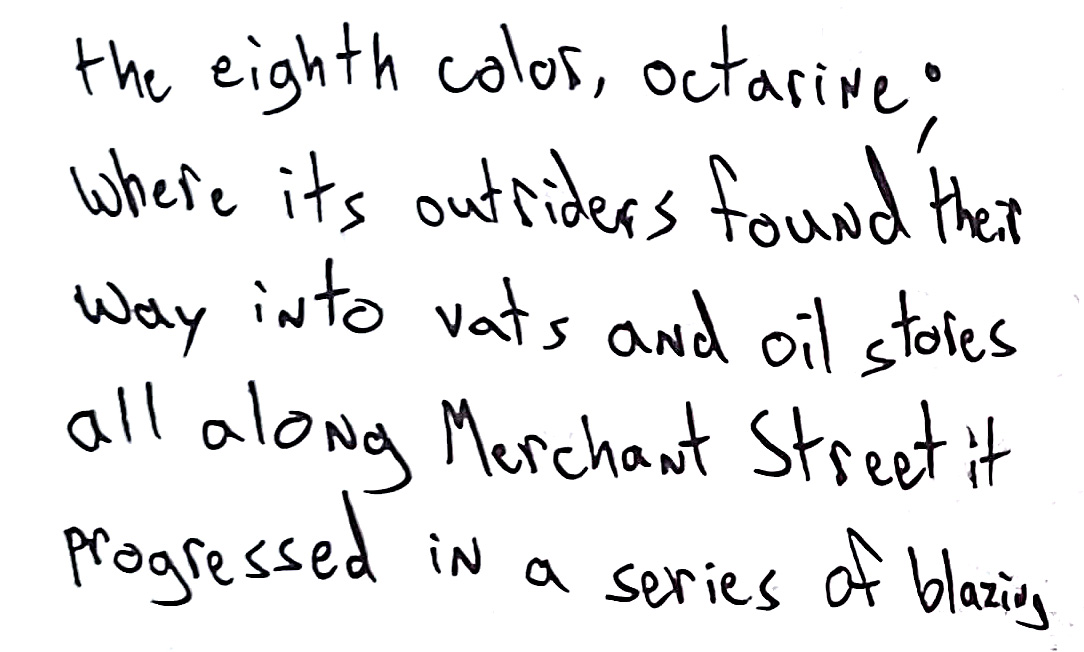 the eighth color, octarine;
where its outriders found their
way into vats and oil stores
all along Merchant Street it
progressed in a series of blazing